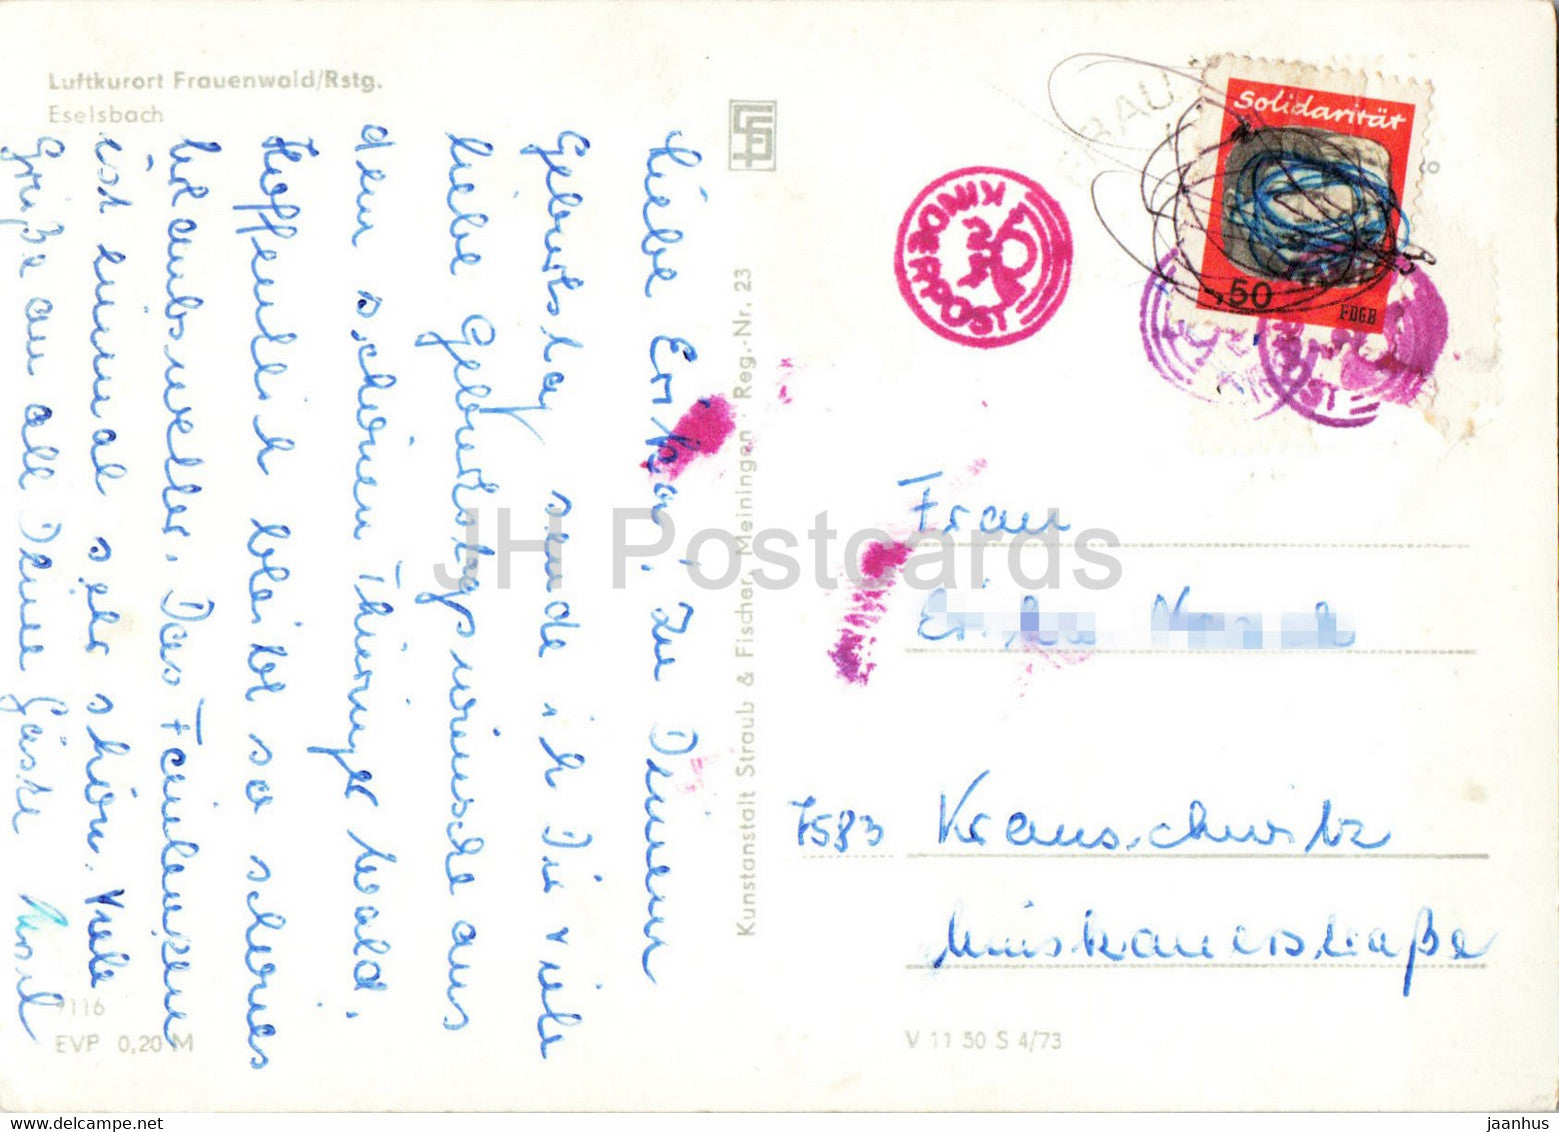 Luftkurort Frauenwald/Rstg.
Eselsbach
Liebe Erika! Zu Deinem
Geburtstag sende ich Dir viele
liebe Geburtstagswünsche aus
dem schönen Thüringer Wald.
Hoffentlich bleibt so schönes
Urlaubswetter. Das
ist einmal sehr schön. Viele
Grüße an all Deine Gäste
9116
EVP 0,20 M
Kunstanstalt Straub & Fischer, Meiningen · Reg.-Nr. 23
V 11 50 S 4/73
FRAU
KINDERPOST
Solidarität
,50
FDGB
POST
Frau
Erika
7583 Krauschwitz
Muskauerstraße
JH Postcards
jaanhus